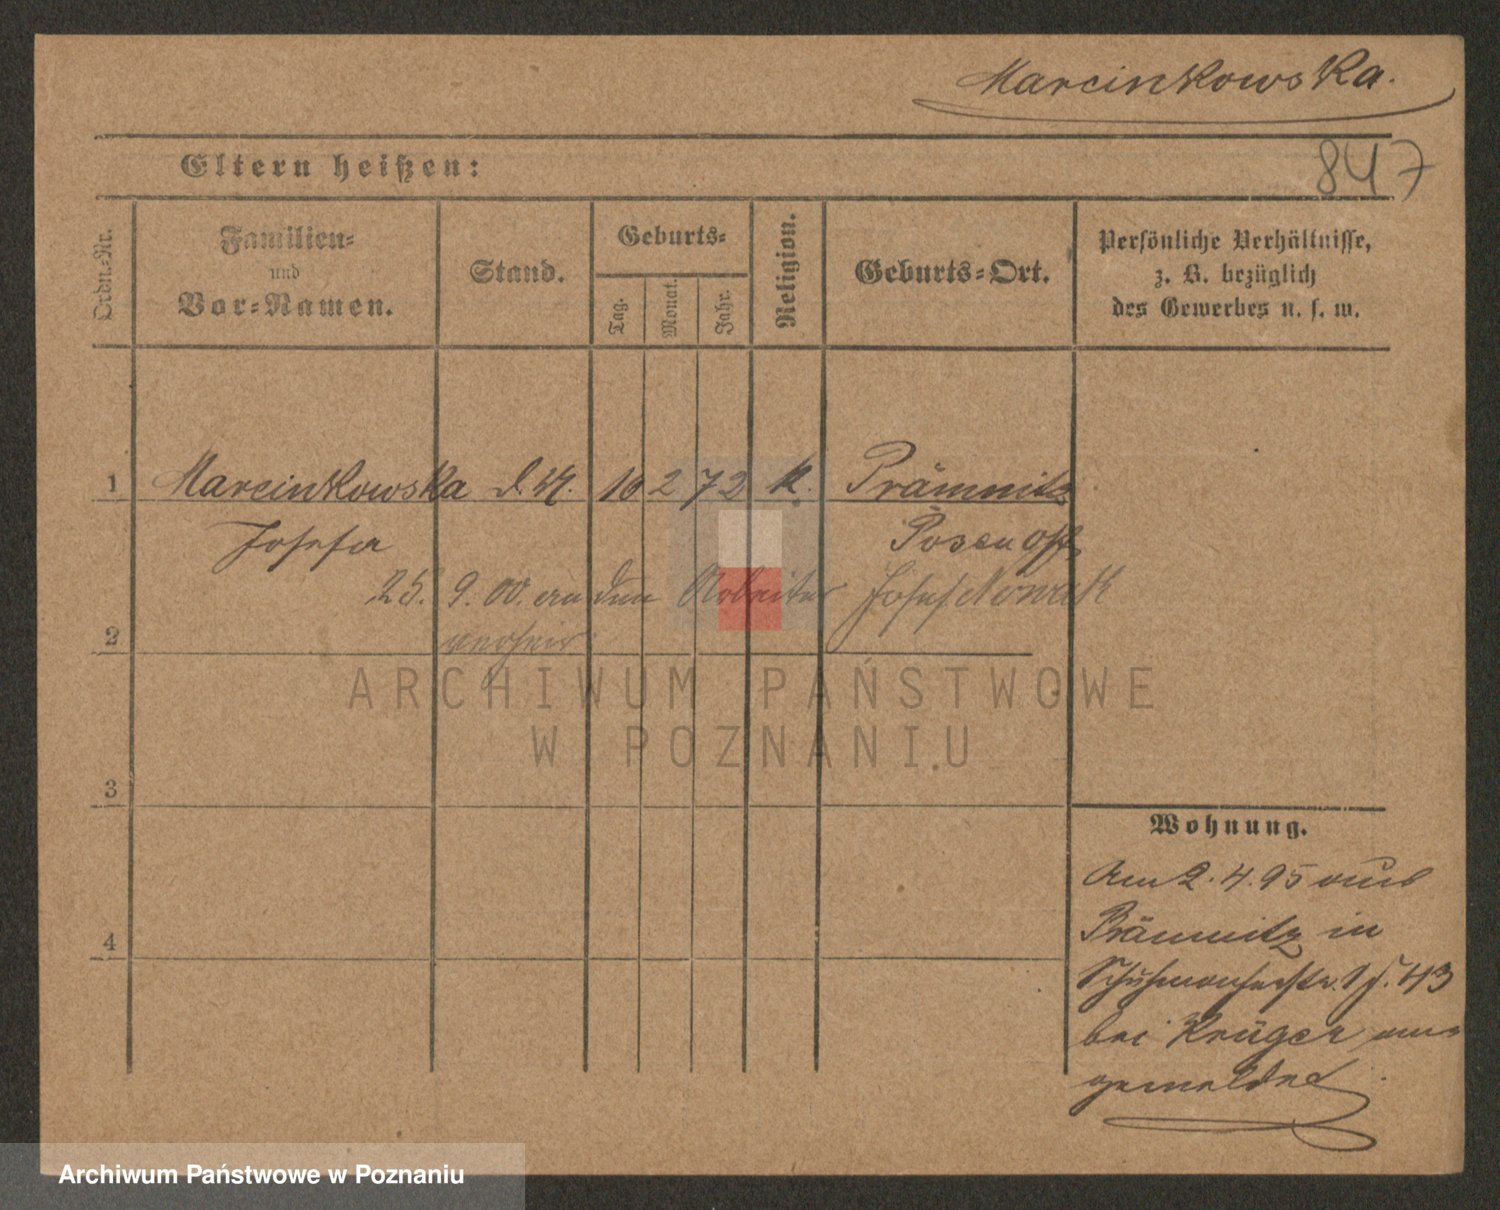 Marcinkowska.
847
Eltern heißen:
Ordn.-Nr.
Familien-
und
Vor-Namen.
Stand.
Geburts-
Tag.
Monat.
Jahr.
Religion.
Geburts-Ort.
Persönliche Verhältnisse,
z. B. bezüglich
des Gewerbes u. s. w.
1 Marcinkowska 10 2 72 K. Prämnitz
Josefa Posen Ost
25. 9. 00. an den Arbeiter Josef Nowak
2 verheir
ARCHIWUM PAŃSTWOWE
W POZNANIU
3
Wohnung.
Am 2. 4. 95 aus
4
Prämnitz in
43
bei Krüger an-
gemeldet
Archiwum Państwowe w Poznaniu